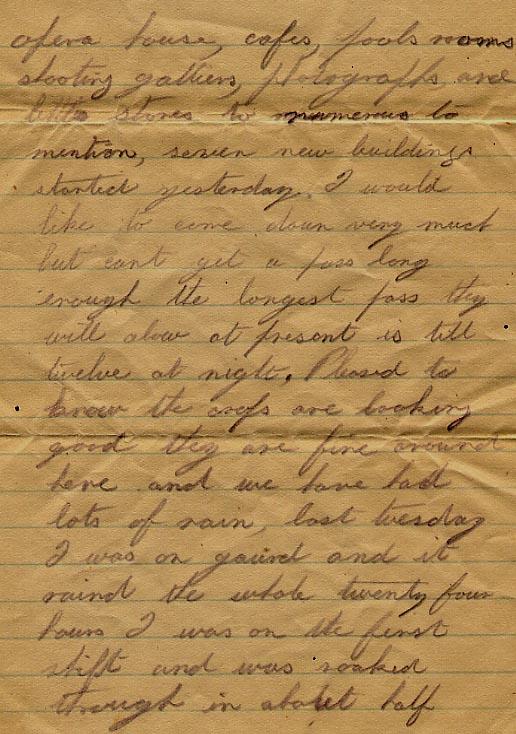 opera house, cafes, pools rooms
shooting galliers, photographs and
little stores to numerous to
mention, seven new buildings
started yesterday. I would
like to come down very much
but cant get a pass long
enough the longest pass they
will alow at present is till
twelve at night. Pleased to
know the crops are looking
good they are fine around
here and we have had
lots of rain, last tuesday
I was on gaurd and it
raind the whole twenty four
hours I was on the first
shift and was soaked
through in about half